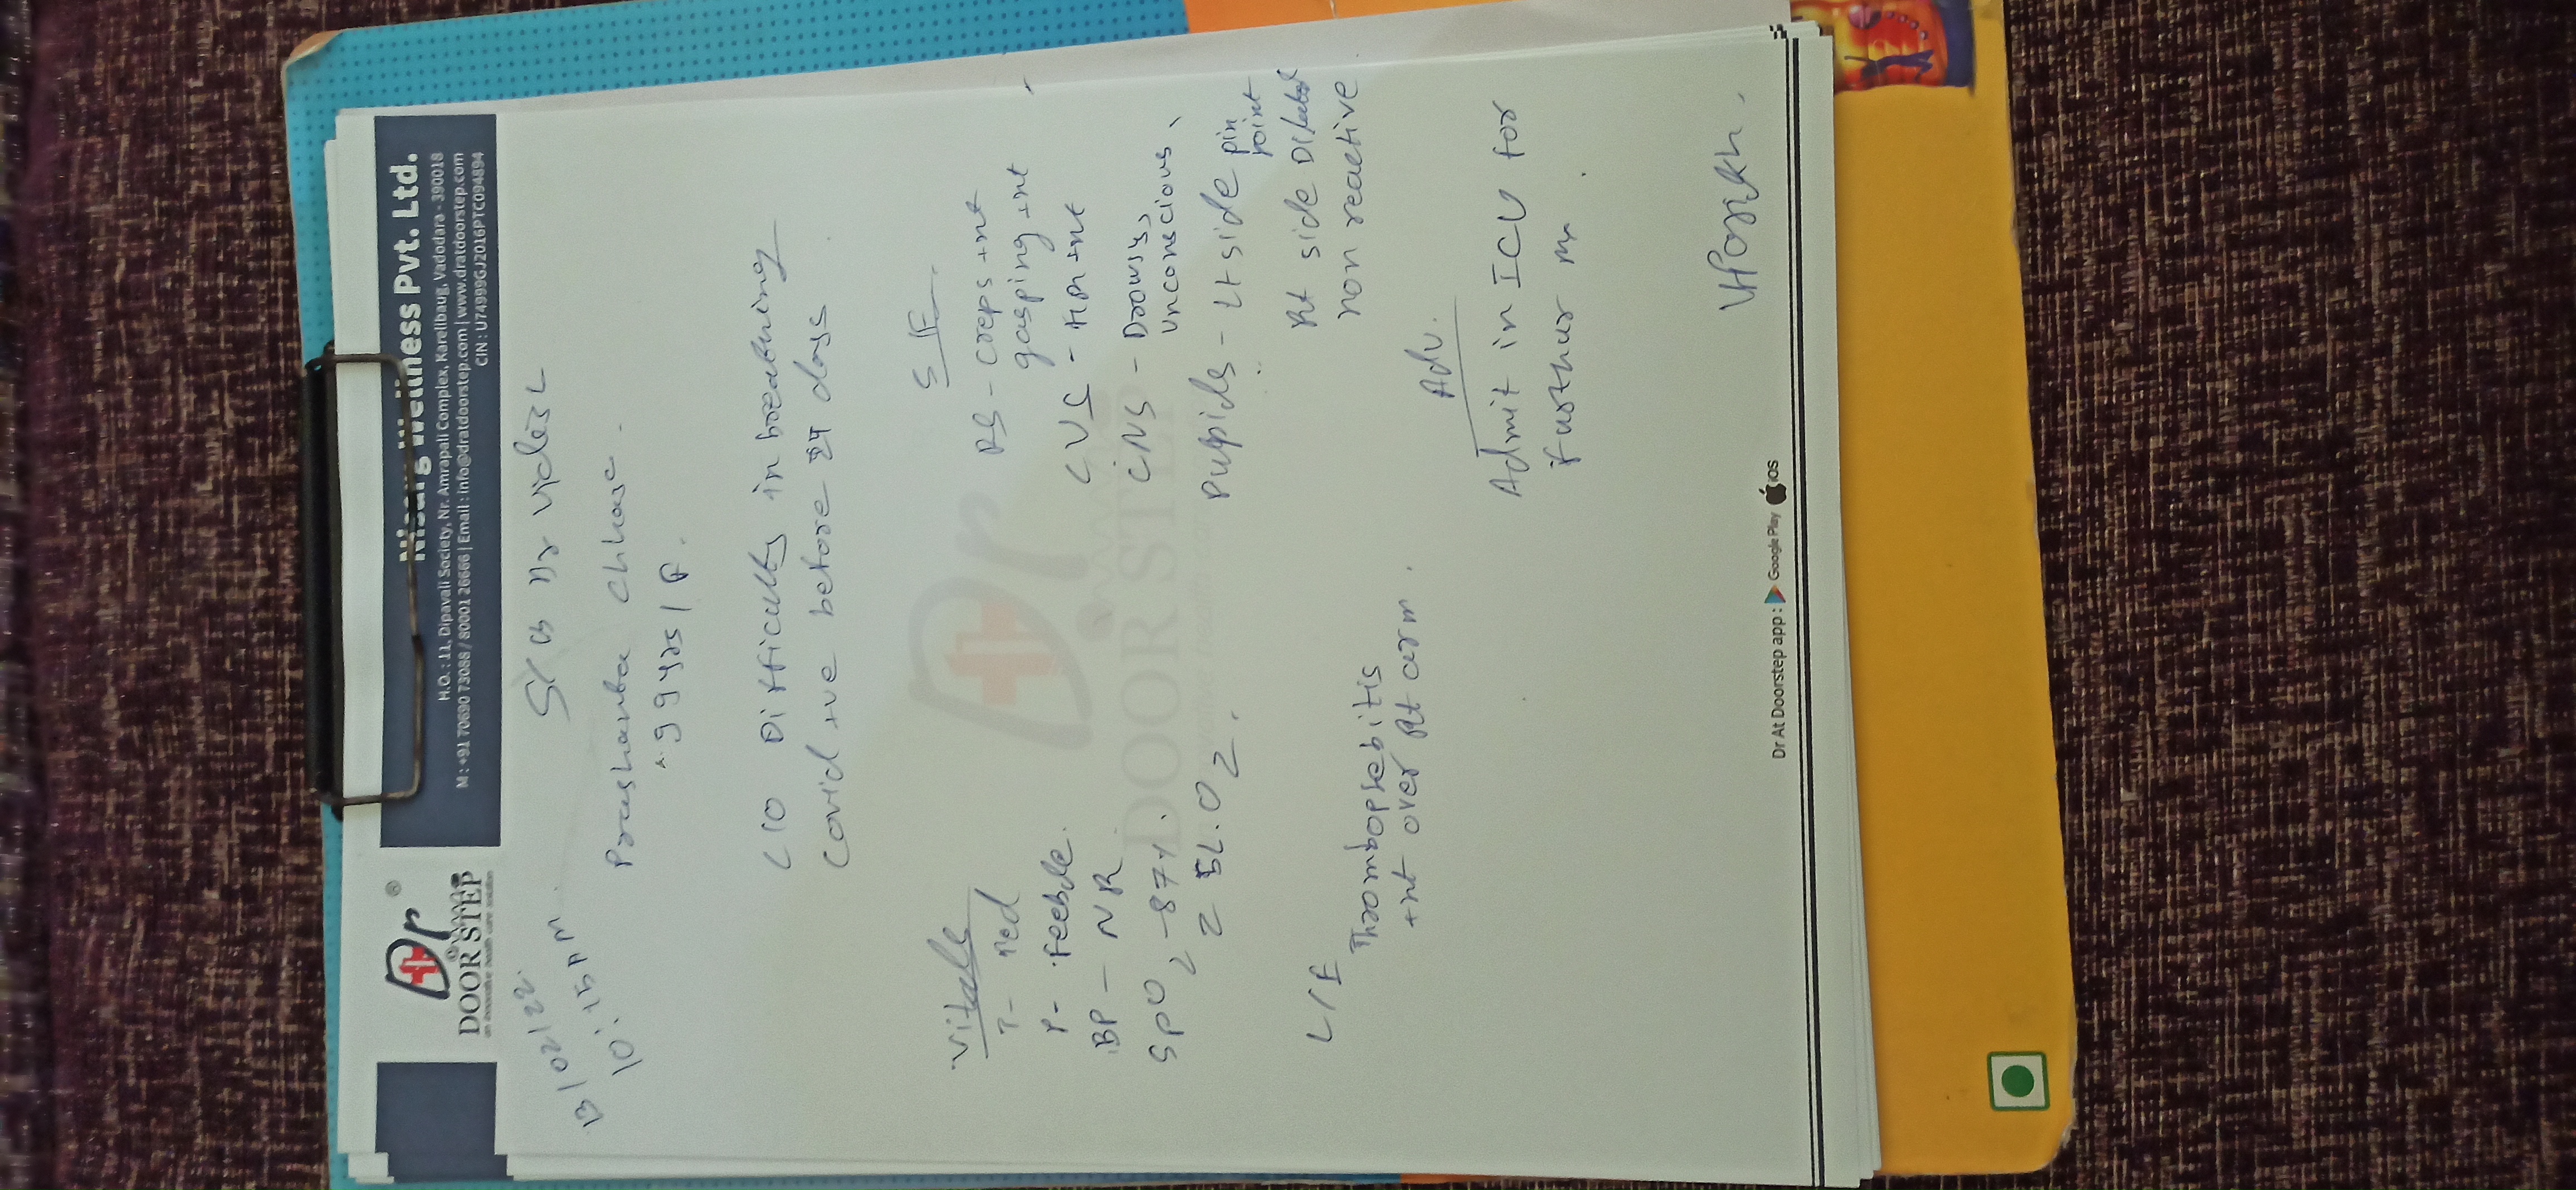 Dr
®
DOOR STEP
an innovative health care solution
Nisarg Wellness Pvt. Ltd.
H.O. : 11, Dipavali Society, Nr. Amrapali Complex, Karelibaug, Vadodara - 390018
M : +91 70690 73088 / 80001 26666 | Email : info@dratdoorstep.com | www.dratdoorstep.com
CIN : U74999GJ2016PTC094894
13/02/22.
10:15 PM.
Dr
Prashanba
99 yrs / F.
C/O Difficulty in breathing
Covid +ve before days
Vitals
T- red
P- Feeble.
BP - NR
SpO2 -87%.
5L.O2.
L/E
Thrombophebitis
+nt over Rt arm.
S/E
RS - Creps +nt
gasping +nt
CVS - +nt
CNS - Drowsy,
unconscious,
Pulpils - Lt side pin
point
Rt side Dilated
non reactive.
Adv.
Admit in ICU for
furthur mx.
VHParikh.
Dr
DOOR STEP
Dr At Doorstep app : Google Play iOS